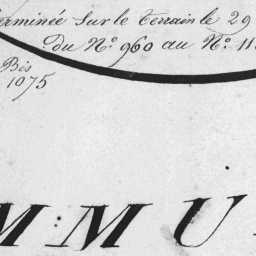 erminée sur le Terrain le 29
du N.º 960 au N.º 11
Bis
1075
MMU